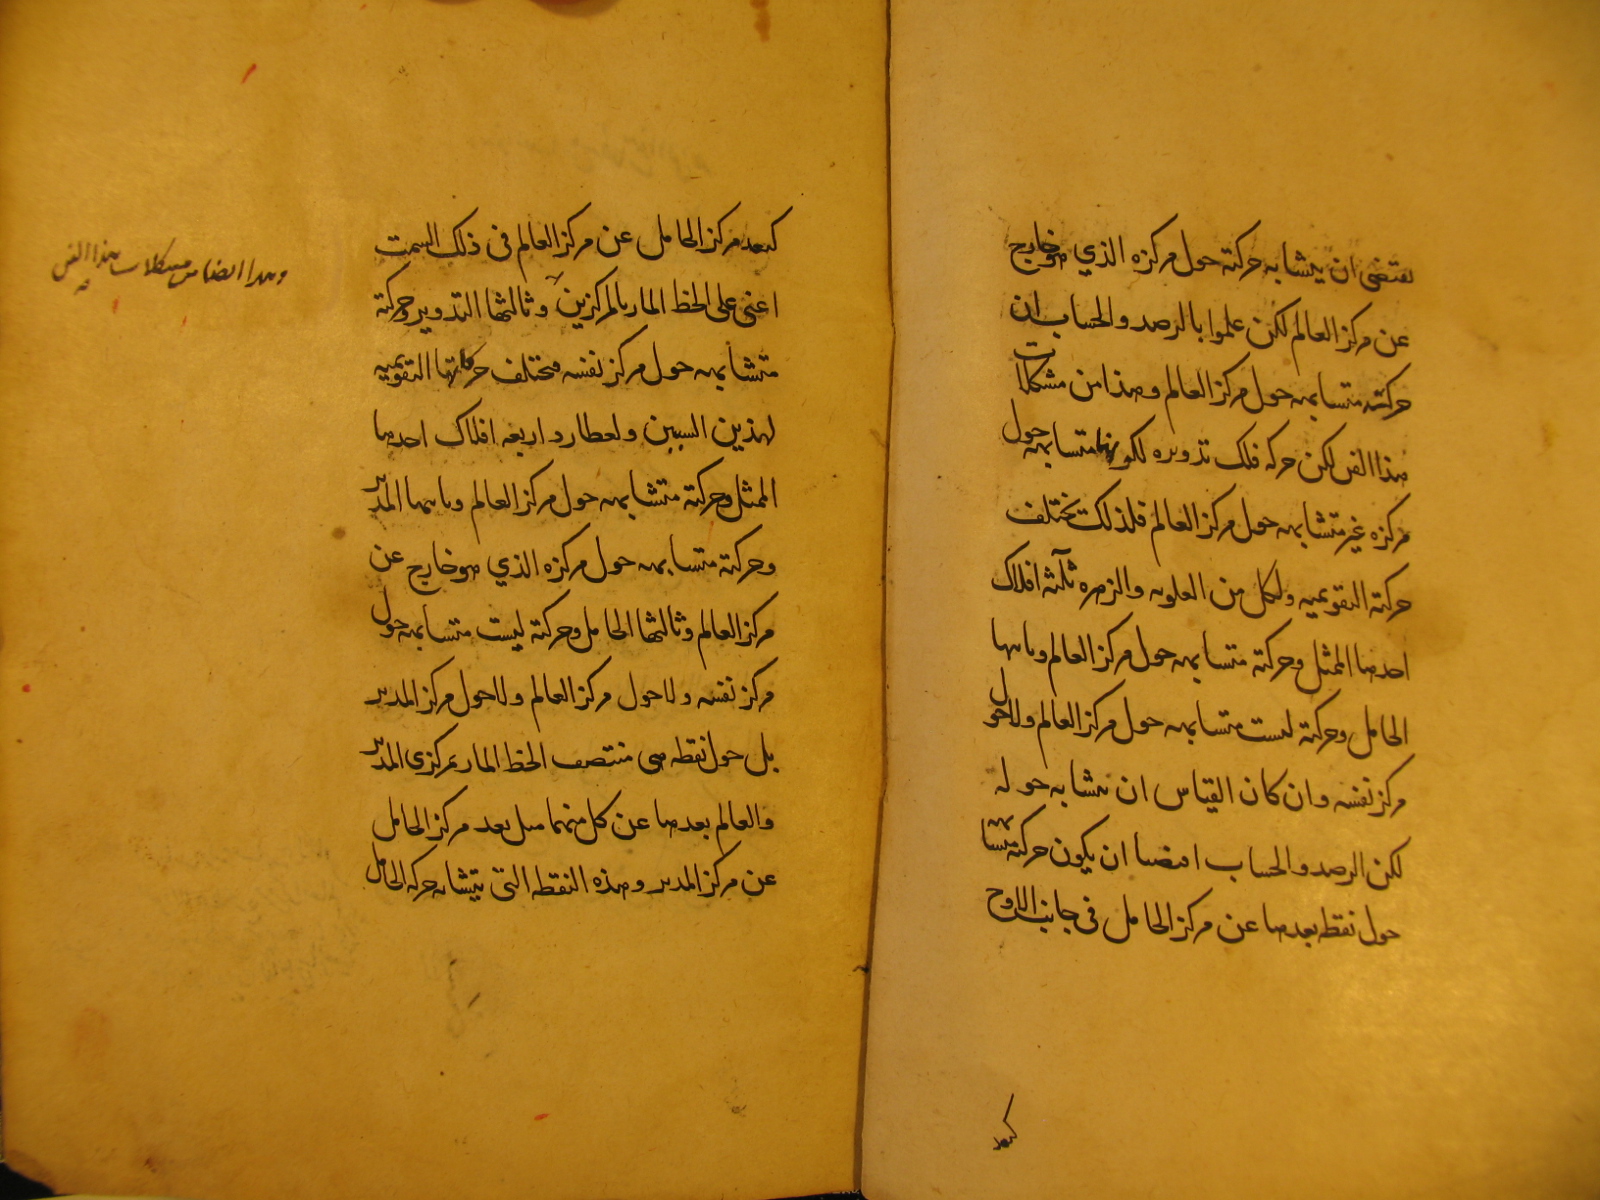 يقتضى ان يتشابه حركته حول مركزه الذي هو خارج
عن مركز العالم لكن علموا بالرصد والحساب ان
حركته متشابهه حول مركز العالم وهذا من مشكلات
هذا الفن لكن حركه فلك تدويره لكونها متشابهه حول
مركزه غير متشابهه حول مركز العالم فلذلك تختلف
حركته التقويميه ولكل من العلويه والزهره ثلثه افلاك
احدها الممثل وحركته متشابهه حول مركز العالم وثانيها
الحامل وحركته ليست متشابهه حول مركز العالم ولا حول
مركز نفسه وان كان القياس ان يتشابه حوله
لكن الرصد والحساب اقتضيا ان يكون حركته متشابهه
حول نقطه بعدها عن مركز الحامل فى جانب الاوج
كبعد
كبعد مركز الحامل عن مركز العالم فى ذلك السمت
اعنى على الخط المار بالمركزين وثالثها التدوير وحركته
متشابهه حول مركز نفسه فتختلف حركاتها التقويميه
لهذين السببين ولعطارد اربعه افلاك احدها
الممثل وحركته متشابهه حول مركز العالم وثانيها المدير
وحركته متشابهه حول مركزه الذي هو خارج عن
مركز العالم وثالثها الحامل وحركته ليست متشابهه حول
مركز نفسه ولا حول مركز العالم ولا حول مركز المدير
بل حول نقطه هى منتصف الخط المار بمركزى المدير
والعالم بعدها عن كل منهما مثل بعد مركز الحامل
عن مركز المدير وهذه النقطه التى يتشابه حركه الحامل
وهذا ايضا من مشكلات هذا الفن